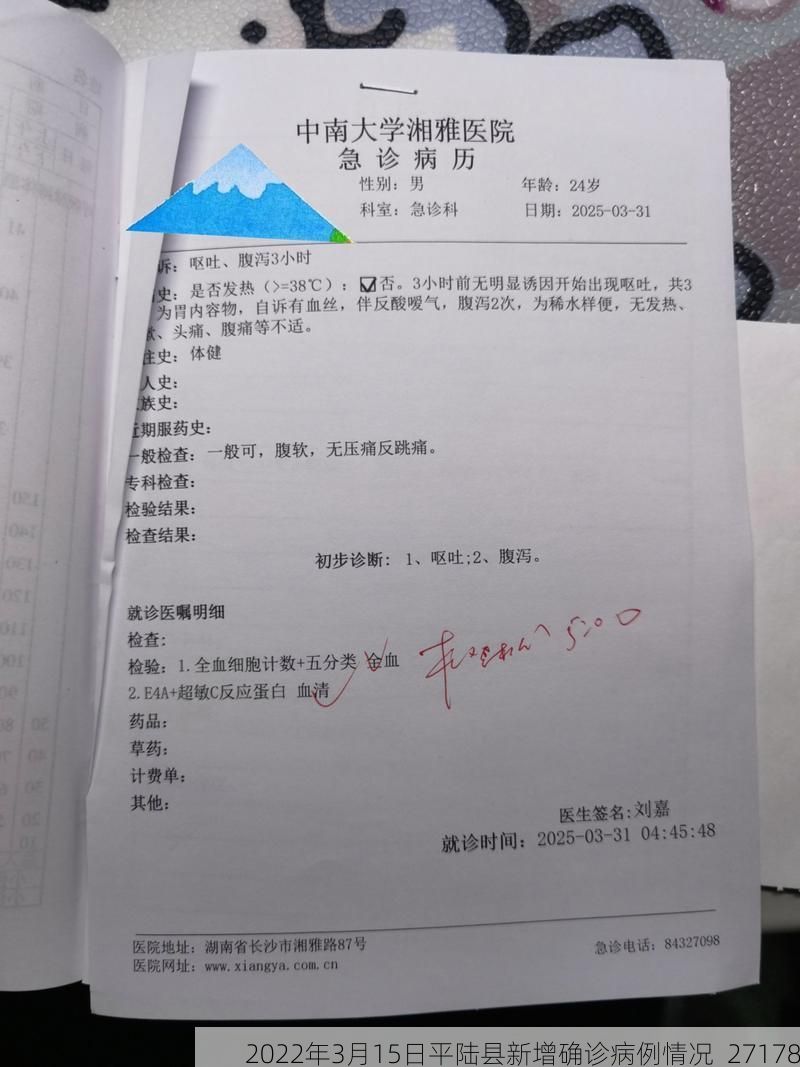 中南大学湘雅医院
急诊病历
性别：男 年龄：24岁
科室：急诊科 日期：2025-03-31
诉：呕吐、腹泻3小时
史：是否发热（>=38℃）：☑否。3小时前无明显诱因开始出现呕吐，共3
为胃内容物，自诉有血丝，伴反酸嗳气，腹泻2次，为稀水样便，无发热、
、头痛、腹痛等不适。
往史：体健
人史：
族史：
近期服药史：
一般检查：一般可，腹软，无压痛反跳痛。
专科检查：
检验结果：
检查结果：
初步诊断： 1、呕吐;2、腹泻。
就诊医嘱明细
检查：
检验：1.全血细胞计数+五分类 全血
2.E4A+超敏C反应蛋白 血清
药品：
草药：
计费单：
其他：
医生签名:刘嘉
就诊时间：2025-03-31 04:45:48
医院地址：湖南省长沙市湘雅路87号 急诊电话：84327098
医院网址：www.xiangya.com.cn
2022年3月15日平陆县新增确诊病例情况 27178